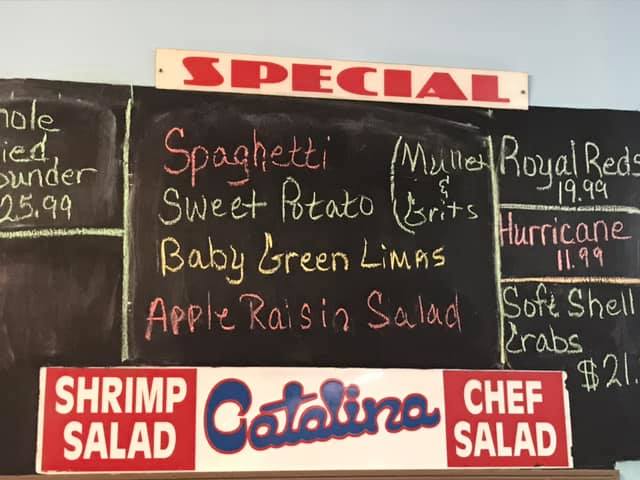 SPECIAL
25.99
Spaghetti
Sweet Potato
Baby Green Limas
Apple Raisin Salad
(Mullet
&
Grits
Royal Reds
19.99
Hurricane
11.99
Soft Shell
Crabs
$21.
SHRIMP
SALAD
Catalina
CHEF
SALAD